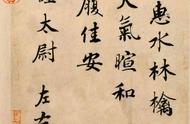 惠水林檎
天氣暄和
履佳安
太尉左右